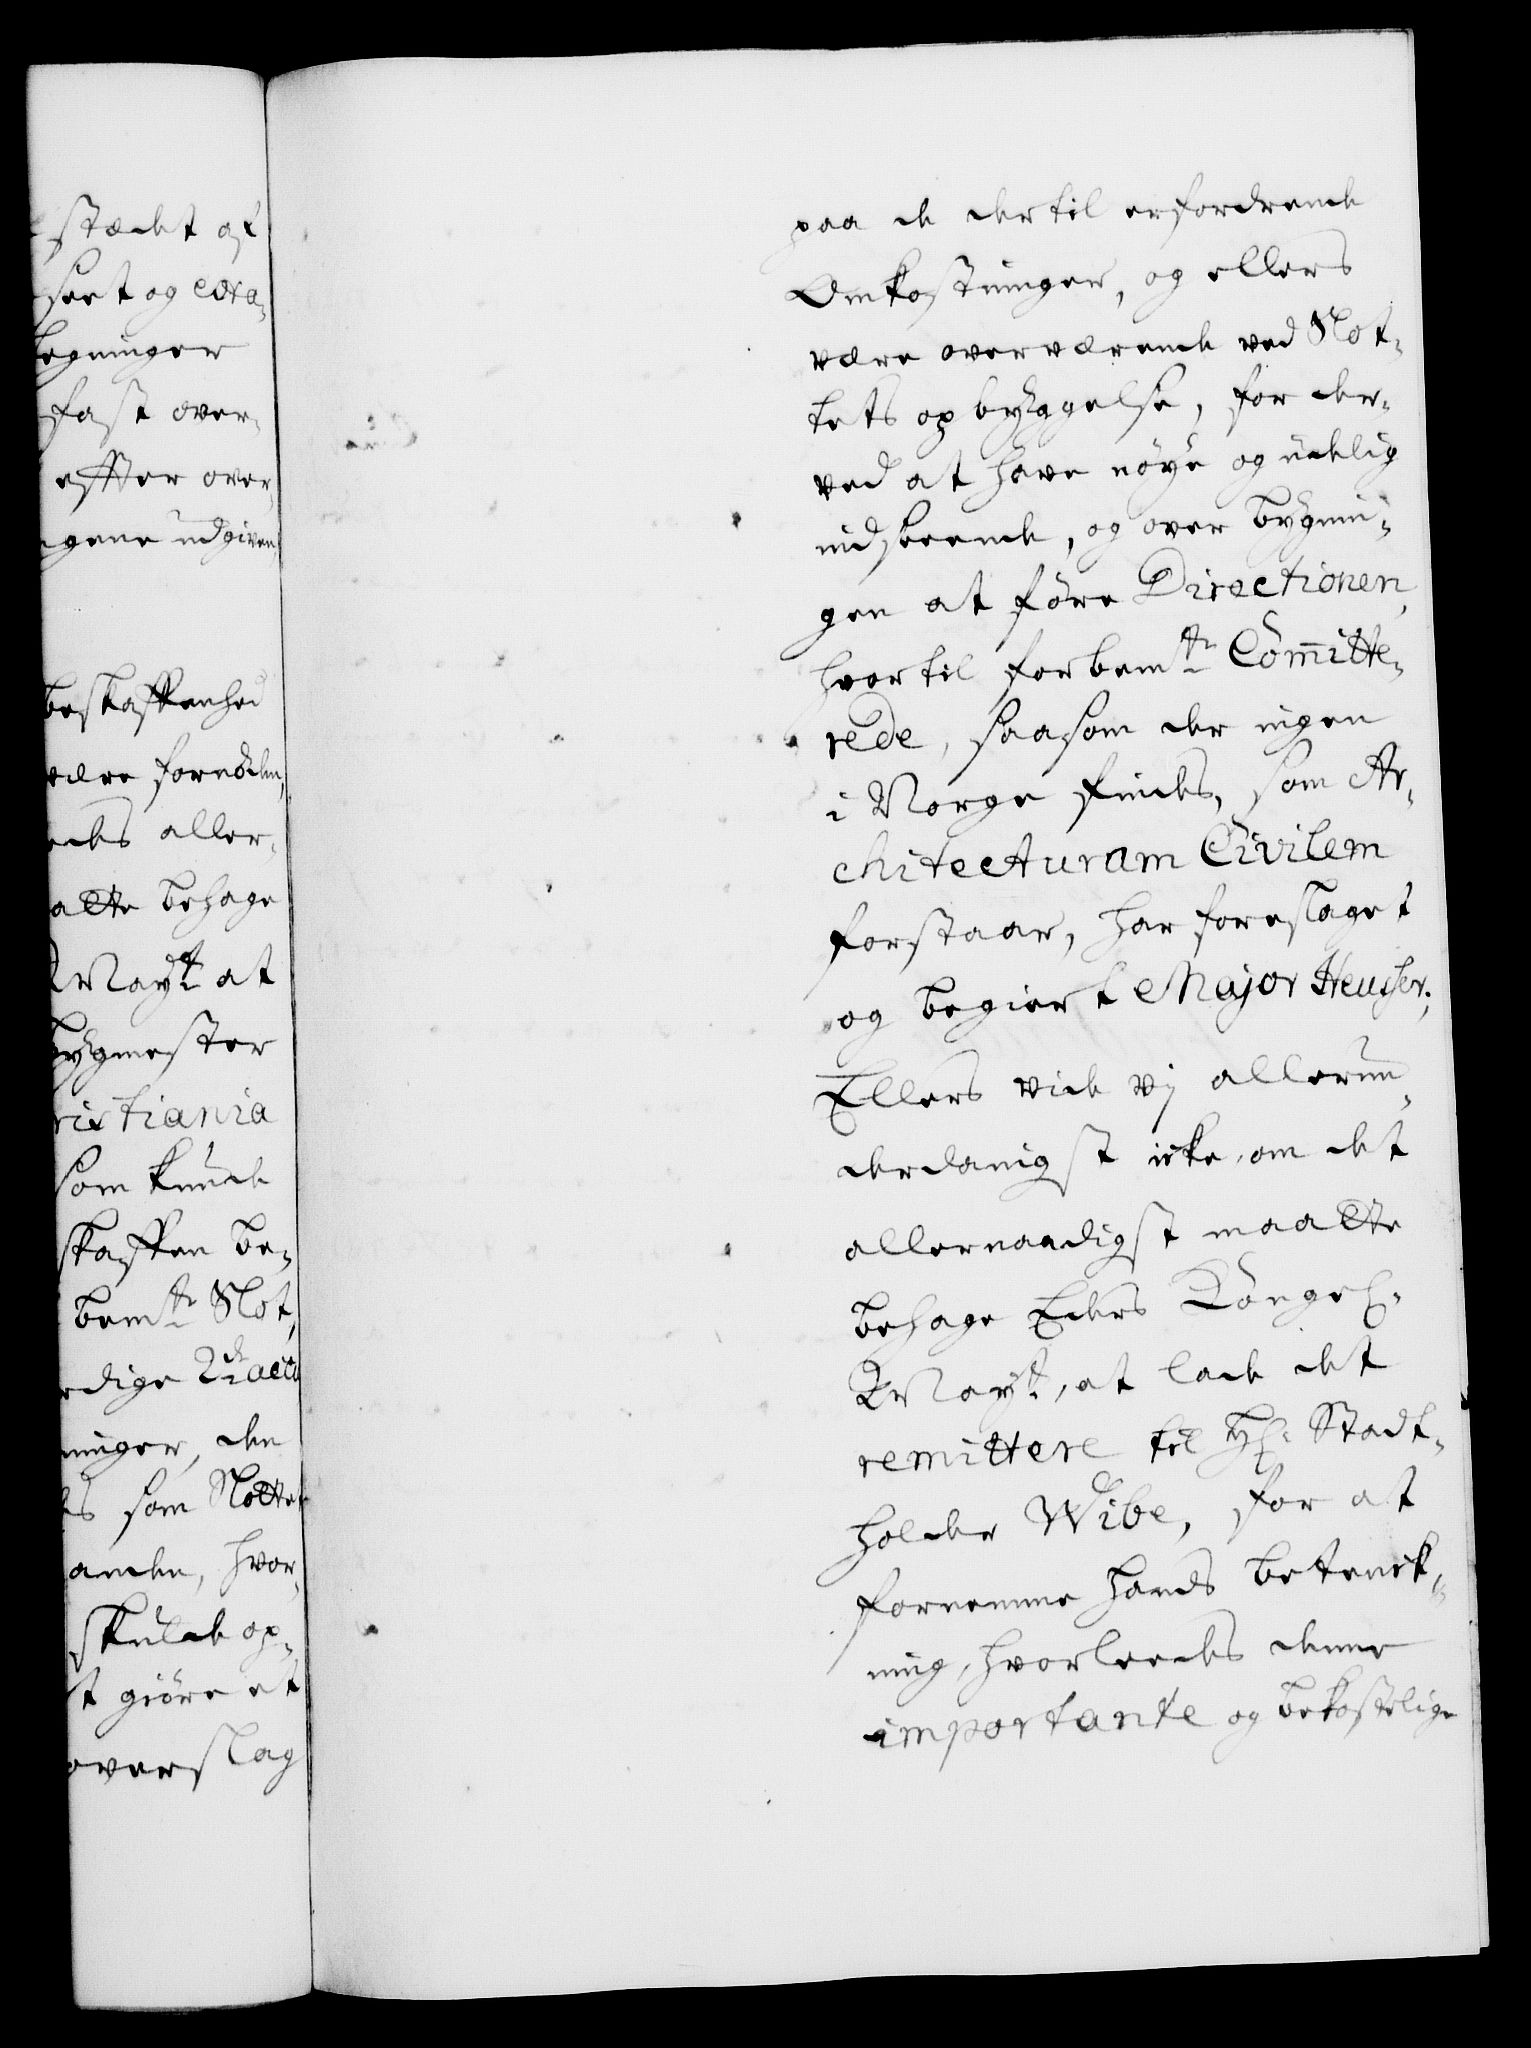 stædet af
seet og extra-
legninger
fast over-
effter over-
gene udgiven,
beskaffenhed
være fornøden,
aller-
aatte behage
Mayt at
bygmester
ristiania
som kunde
skaffen be-
bemte Slot,
rdige
ninger, den
som Slotte
anden, hvor-
skulde op-
t giöre et
overslag
paa de dertil erfordrende
Omkostninger, og ellers
være overværende ved Slot-
tets opbyggelse, for der-
ved at have nöye og
indseende, og over bygnin-
gen at före Directionen,
hvortil forbemte Com̄itte-
rede, saasom der ingen
i Norge findes, som Ar-
chitecturam Civilem
forstaar, har foreslaget
og begiert Major Heusser;
Ellers vide vj allerun-
derdanigst icke, om det
allernaadigst maatte
behage Eders Köngel:
Mayt, at lade det
remittere til Hr: Stadt-
holder Wibe, for at
fornemme hands betenck-
ning, hvorleedes denne
importante og bekostelige